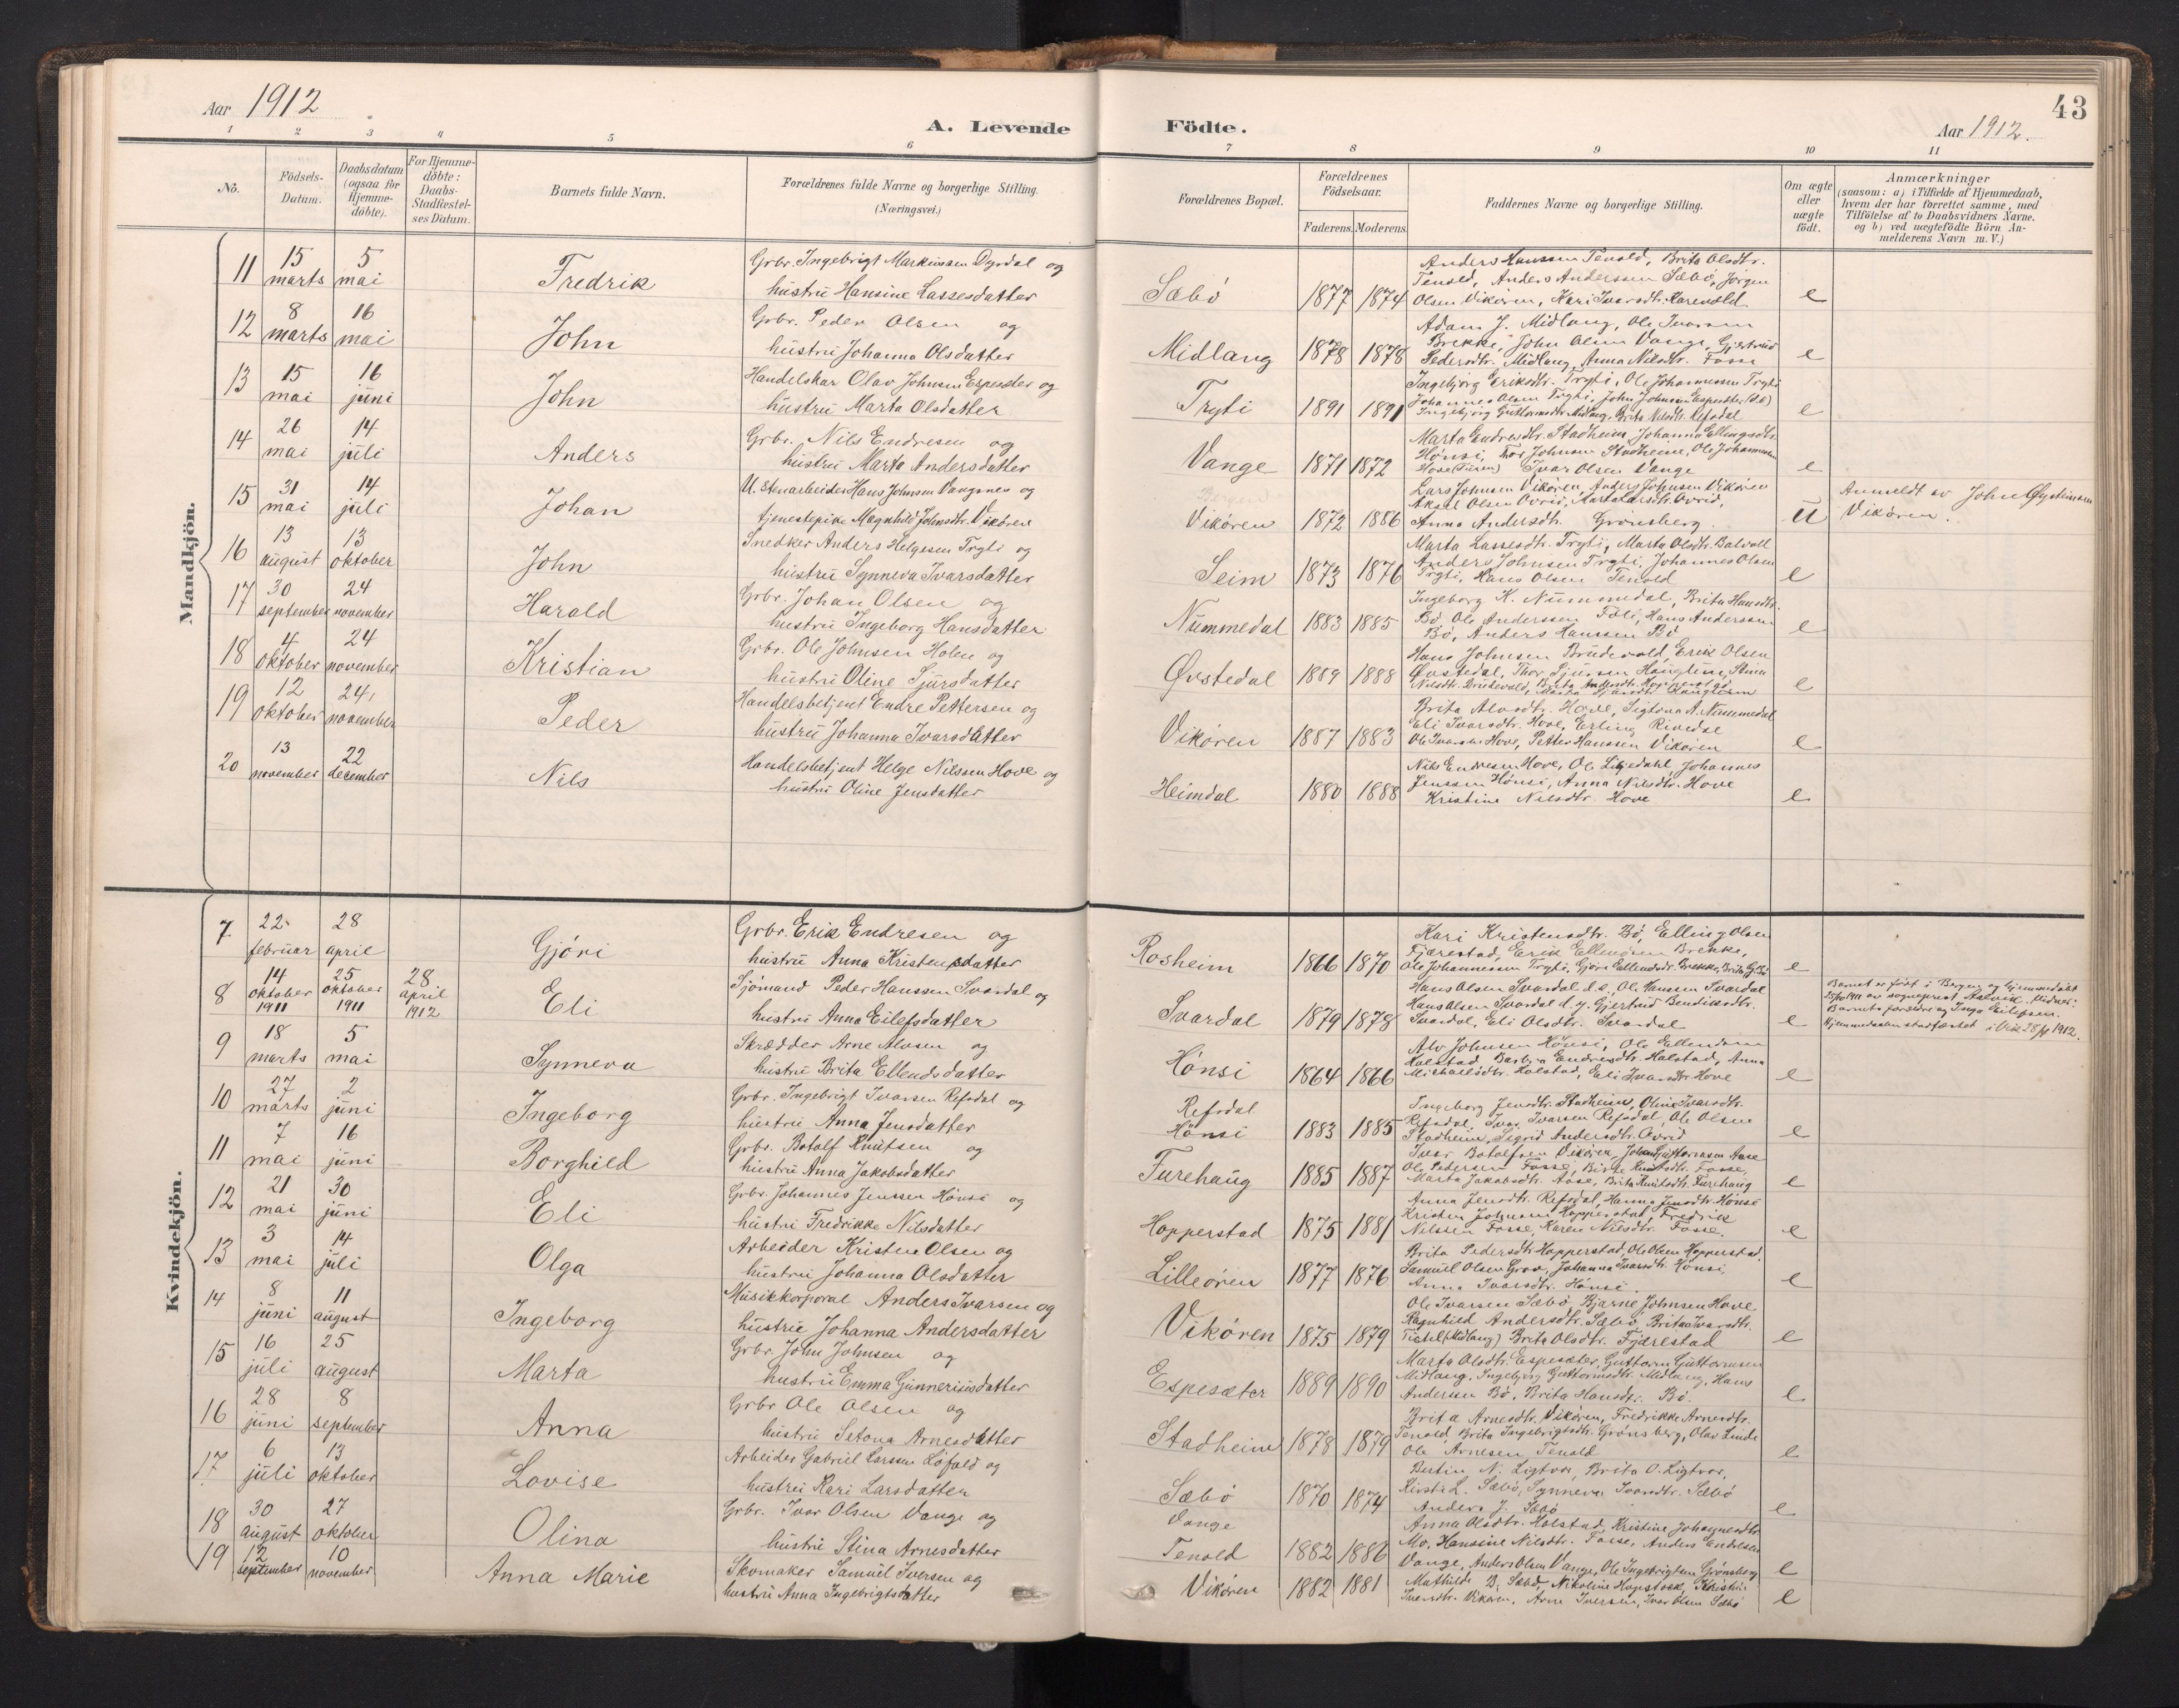 Aar 1912
A. Levende Födte.
43
Aar 1912.
1 2 3 4 5 6 7 8 9 10 11
No.
Födsels-Datum.
Daabsdatum (ogsaa for Hjemme-döbte).
For Hjemme-döbte: Daabs-Stadfæstel-ses Datum.
Barnets fulde Navn.
Forældrenes fulde Navne og borgerlige Stilling. (Næringsvei.)
Forældrenes Bopæl.
Forældrenes Födselsaar.
Faderens. Moderens.
Faddernes Navne og borgerlige Stilling.
Om ægte eller uægte födt.
Anmærkninger
(saasom: a) i Tilfælde af Hjemmedaab,
hvem der har forrettet samme, med
Tilföielse af to Daabsvidners Navne.
og b) ved uægtefödte Börn An-
melderens Navn m. V.)
Mandkjön.
11 15 marts 5 mai Fredrik
Grbr. Ingebrigt Markussen Dyrdal og
hustru Hansine Lassesdatter
Sæbö 1877 1874
Anders Hanssen Tenold, Brita Olsdtr.
Tenold, Anders Anderssen Sæbö, Jörgen
Olsen Vikören, Kari Ivarsdtr. Karevold
e
12 8 marts 16 mai John
Grbr. Peder Olsen og
hustru Johanna Olsdatter
Midlang 1878 1878
Adam J. Midlang, Ole Ivarsen
Brekke, John Olsen Vange, Gjertrud
Pedersdtr. Midlang, Anna Nilsdtr. Fosse
e
13 15 mai 16 juni John
Handelskar Olav Johnsen Espesæter og
hustru Marta Olsdatter
Tryti 1891 1891
Ingebjörg Eriksdtr. Tryti, Ole Johannessen Tryti
Johannes Olsen Tryti, John Johnsen Espesæter (d.e.)
Ingebjörg Guttormsdtr. Midlang, Brita Nilsdtr. Refsdal
e
14 26 mai 14 juli Anders
Grbr. Nils Endresen og
hustru Marta Andersdatter
Vange 1871 1872
Marta Endresdtr. Stadheim, Johanna Ellingsdtr.
Hönsi, Tor Johnsen Stadheim, Ole Johannessen
Hove Ivar Olsen Vange
e
15 31 mai 14 juli Johan
U. Stenarbeider Hans Johnsen Vangsnes og
tjenestepike Magnhild Johnsdtr. Vikören
Bergen
Vikören 1872 1886
Lars Johnsen Vikören, Anders Johnsen Vikören
Aksel Olsen Övrid, Marta Larsdtr. Övrid,
Anna Andersdtr. Grönsberg.
U
Anmeldt av John Öysteinsen
Vikören.
16 13 august 13 oktober John
Snedker Anders Helgesen Tryti og
hustru Synneva Ivarsdatter
Seim 1873 1876
Marta Lassesdtr. Tryti, Marta Olsdtr. Balvoll
Anders Johnsen Tryti, Johannes Olsen
Tryti, Hans Olsen Tenold
e
17 30 september 24 november Harald
Grbr. Johan Olsen og
hustru Ingeborg Hansdatter
Nummedal 1883 1885
Ingeborg K. Nummedal, Brita Hansdtr.
Bö, Ole Anderssen Föli, Hans Anderssen
Bö, Anders Hanssen Bö
e
18 4 oktober 24 november Kristian
Grbr. Ole Johnsen Holen og
hustru Oline Sjursdatter
Övstedal 1889 1888
Hans Johnsen Brudevold, Erik Olsen
Övstedal, Thor Sjursen Haugtun, Stina
Nilsdtr. Brudevold, Brita Andersdtr. Hopperstad
Marta Sjursdtr. Haugtun
e
19 12 oktober 24, november Peder
Handelsbetjent Endre Pettersen og
hustru Johanna Ivarsdatter
Vikören 1887 1883
Brita Alvsdtr. Hove, Sigtona A. Nummedal
Eli Ivarsdtr. Hove, Erling Rivedse
Ole Ivarsen Hove, Petter Hanssen Vikören
e
20 13 november 22 december Nils
Handelsbetjent Helge Nilssen Hove og
hustru Oline Jensdatter
Heimdal 1880 1888
Nils Endresen Hove, Ole Liljedahl, Johannes
Jenssen Hönsi, Anna Nilsdtr. Hove
Kristine Nilsdtr. Hove
e
Kvindekjön.
7. 22 februar 28 april Gjöri
Grbr. Erik Endresen og
hustru Anna Kristensdatter
Rosheim 1866 1870
Kari Kristensdtr. Bö, Elling Olsen
Fjærestad, Erik Ellendsen Brekke,
Ole Johannessen Tryti, Gjöri Ellendsdr. Brekke, Brita G. Bö
e
8 14 oktober 1911 25 oktober 1911 28 april 1912 Eli
Sjömand Peder Hanssen Svardal og
hustru Anna Eilefsdatter
Svardal 1879 1878
Hans Olsen Svardal d.e., Ole Hanssen Svardal
Hans Olsen Svardal d.y. Gjertrud Bendiksdtr.
Svardal, Eli Olsdtr. Svardal
e
Barnet er födt i Bergen og hjemmedöbt
25/10 1911 av sogneprest Astvik. Vidner:
Barnets forældre og Inga Eilefsen.
Hjemmedaaben stadfæstet i Vik 28/4 1912.
9 18 marts 5 mai Synneva
Skrædder Arne Alvsen og
hustru Brita Ellendsdatter
Hönsi 1864 1866
Alv Johnsen Hönsi, Ole Ellendsen
Halstad, Barbra Endresdtr. Halstad, Anna
Michaelsdtr. Halstad, Eli Ivarsdtr. Hove
e
10 27 marts 2 juni Ingeborg
Grbr. Ingebrigt Ivarsen Refsdal og
hustru Anna Jensdatter
Refsdal
Hönsi 1883 1885
Ingeborg Jensdtr. Stadheim, Oline Ivarsdtr.
Refsdal, Ivar Ivarsen Refsdal, Ole Olsen
Stadheim, Sigrid Andersdtr. Övrid
e
11 7 mai 16 juni Borghild
Grbr. Botolf Knutsen og
hustru Anna Jakobsdatter
Furehaug 1885 1887
Ivar Botolfsen Vikören, Johan Guttormsen Aase
Ole Pedersen Fosse, Birte Knutsdtr. Fosse,
Marta Jakobsdtr. Aase, Brita Knutsdtr. Furehaug
e
12 21 mai 30 juni Eli
Grbr. Johannes Jenssen Hönsi og
hustru Fredrikke Nilsdatter
Hopperstad 1875 1881
Anna Jensdtr. Refsdal, Hanna Jensdtr. Hönsi
Kristen Johnsen Hopperstad, Fredrik
Nilsen Fosse, Karen Nilsdtr. Fosse.
e
13 3 mai 14 juli Olga
Arbeider Kristen Olsen og
hustru Johanna Olsdatter
Lilleören 1877 1876
Brita Pedersdtr. Hopperstad, Ole Olsen Hopperstad,
Samuel Olsen Grov, Johanna Ivarsdtr. Hönsi,
Anna Ivarsdtr. Hönsi.
e
14 8 juni 11 august Ingeborg
Musikkorporal Anders Ivarsen og
hustru Johanna Andersdatter
Vikören 1875 1879
Ole Ivarsen Sæbö, Bjarne Johnsen Hove
Ragnhild Andersdtr. Sæbö, Brita Ivarsdtr.
Tistel (Midlang) Brita Olsdtr. Fjærestad
e
15 16 juli 25 august Marta
Grbr. John Johnsen og
hustru Emma Gunneriusdatter
Espesæter 1889 1890
Marta Olsdtr. Espesæter, Guttorm Guttormsen
Midlang, Ingebjörg Guttormsdtr. Midlang, Hans
Andersen Bö, Brita Hansdtr. Bö.
e
16 28 juni 8 september Anna
Grbr Ole Olsen og
hustru Setona Arnesdatter
Stadheim 1878 1879
Brita Arnesdtr. Vikören, Fredrikke Arnesdtr.
Tenold, Brita Ingebrigtsdtr. Grönsberg, Olav Linde
Ole Arnesen Tenold
e
17 6 juli 13 oktober Lovise
Arbeider Gabriel Larssen Lofald og
hustru Kari Larsdatter
Sæbö 1870 1874
Bertin N. Ligtvor, Brita O. Ligtvor,
Kirsti L. Sæbö, Synneva Ivarsdtr. Sæbö
Anders J. Sæbö
e
18 30 august 27 oktober Olina
Grbr. Ivar Olsen Vange og
hustru Stina Arnesdatter
Vange
Tenold 1882 1886
Anna Olsdtr. Halstad, Kristine Johannesdtr.
Mo, Hansine Nilsdtr. Fosse, Anders Endresen
Vange, Anders Olsen Vange, Ole Ingebrigtsen Grönsberg
e
19 12 september 10 november Anna Marie
Skomaker Samuel Iversen og
hustru Anna Ingebrigtsdatter
Vikören 1882 1881
Mathilde B. Sæbö, Nikoline Hopstock, Kristi
Iversdtr. Vikören, Arne Iversen, Ivar Olsen Sæbö
e